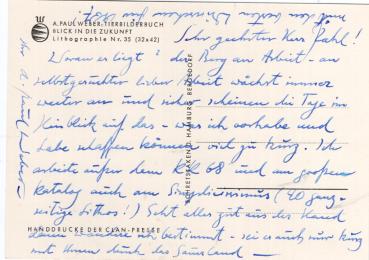 mit den besten Wünschen für 1967!
A. PAUL WEBER: TIERBILDERBUCH
BLICK IN DIE ZUKUNFT
Lithographie Nr. 35 (32x42)
Sehr geehrter Herr Pahl!
Woran es liegt? der Berg an Arbeit - an
selbstgesuchter lieber Arbeit wächst immer
weiter an und sicher scheinen die Tage im
Hinblick auf das - was ich vorhabe und
habe schaffen können viel zu kurz. Ich
arbeite außer dem Kr. K. 68 und am großen
Katalog auch am Simplicissimus (40 ganz-
seitige Lithos!) Geht alles gut aus der Hand
dann wandre ich bestimmt - sei es auch nur kurz
mit Ihnen durch das Sauerland -
Ihr A. Paul Weber
HAMBURG BERGEDORF
HANDDRUCKE DER CLAN-PRESSE